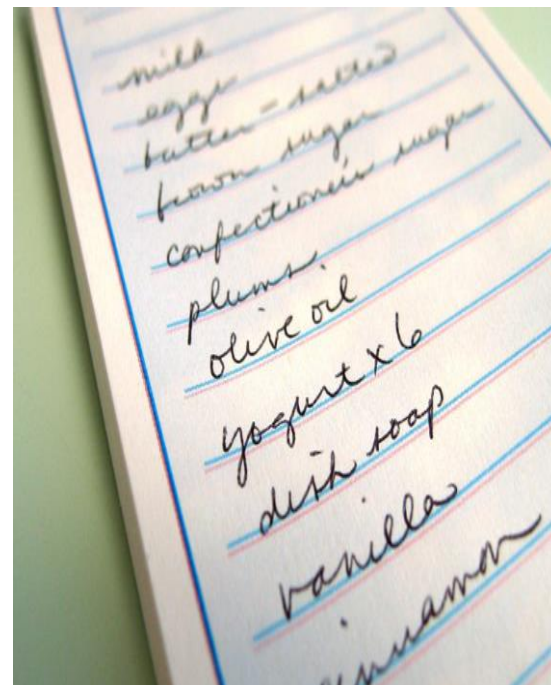 milk
eggs
butter - salted
brown sugar
confectioner's sugar
plums
olive oil
yogurt x 6
dish soap
vanilla
cinnamon